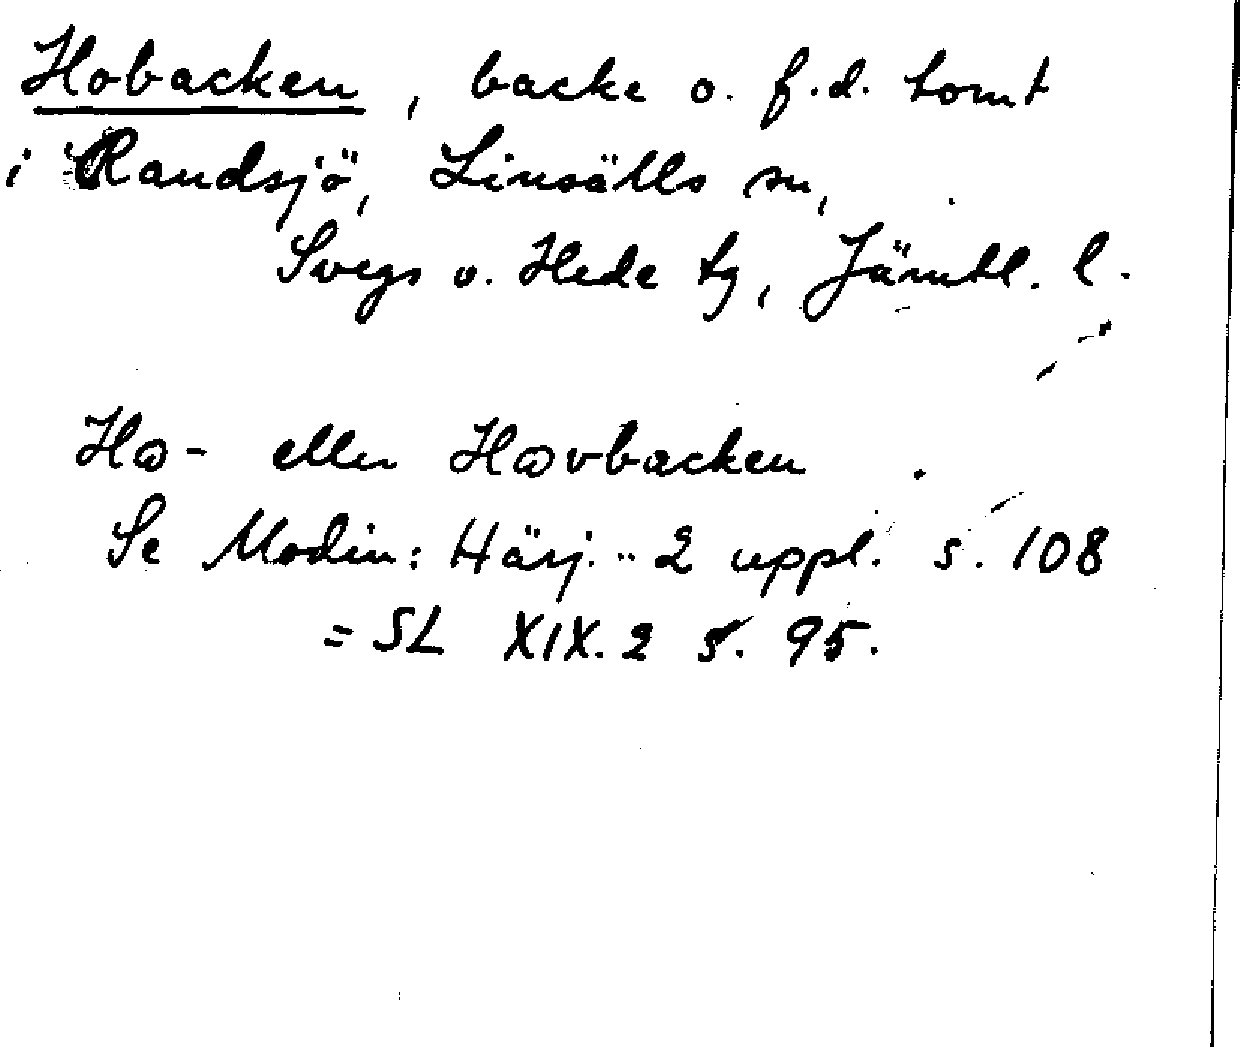 Hobacken, backe o. f.d. tomt
i Randsjö, Linsälls sn,
Svegs o. Hede tg, Jämtl. l.
Ho- eller Hovbacken
Se Modin: Härj. .. 2 uppl. s. 108
= SL XIX. 2 s. 95.